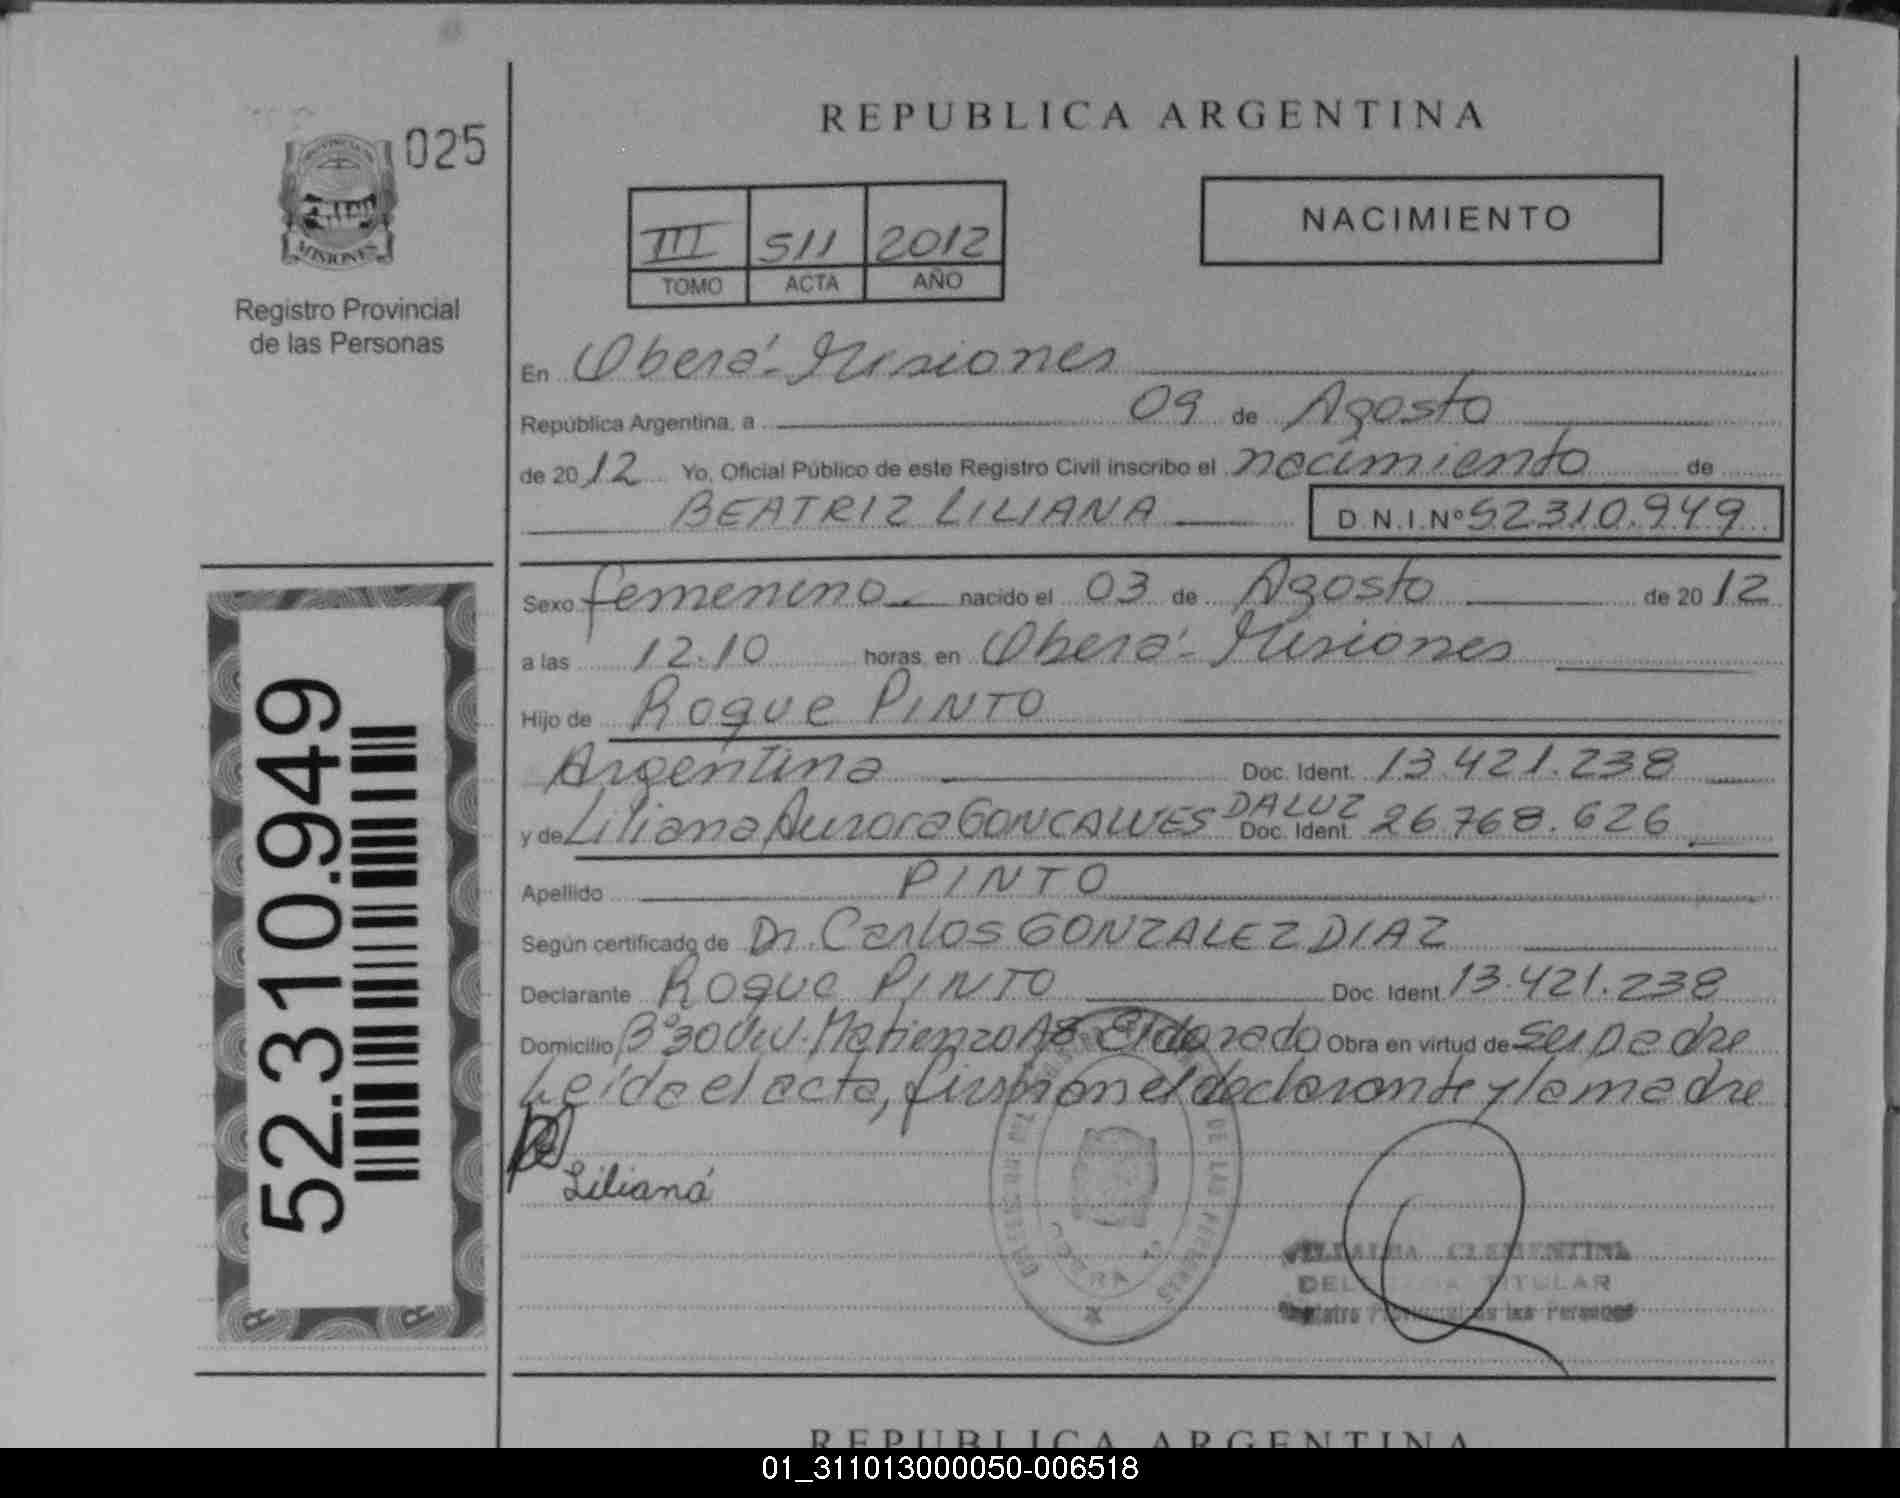 025
MISIONES
Registro Provincial
de las Personas
52.310.949
REPUBLICA ARGENTINA
III 511 2012
TOMO ACTA AÑO
NACIMIENTO
En Oberá - Misiones
República Argentina, a 09 de Agosto
de 2012 Yo, Oficial Público de este Registro Civil inscribo el nacimiento de
BEATRIZ LILIANA D.N.I. Nº 52310.949
Sexo femenino nacido el 03 de Agosto de 2012
a las 12.10 horas, en Oberá - Misiones
Hijo de Roque PINTO
Argentina Doc. Ident. 13.421.238
y de Liliana Aurora GONCALVES DALUZ Doc. Ident. 26.768.626
Apellido PINTO
Según certificado de Dr. Carlos GONZALEZ DIAZ
Declarante Roque PINTO Doc. Ident. 13.421.238
Domicilio Bº 30 Viv. Matienzo A8 Eldorado Obra en virtud de ser padre
Leída el acta, firman el declarante y la madre
Liliana
CLEMENTINA
TITULAR
REPUBLICA ARGENTINA
01_311013000050-006518